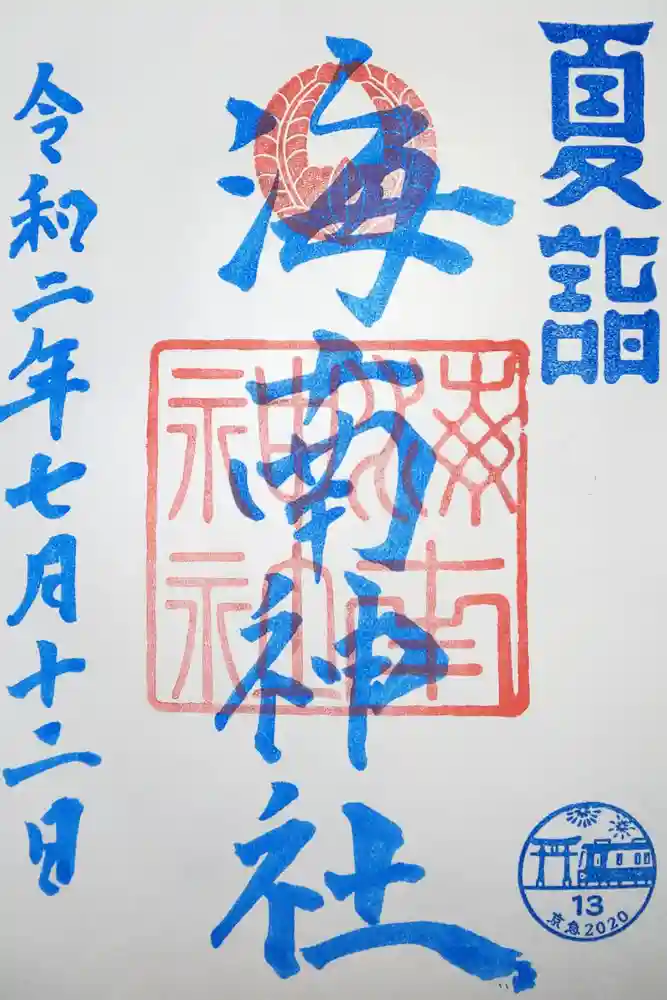 夏詣
海南神社
海南
神社
令和二年七月十二日
13
京急2020